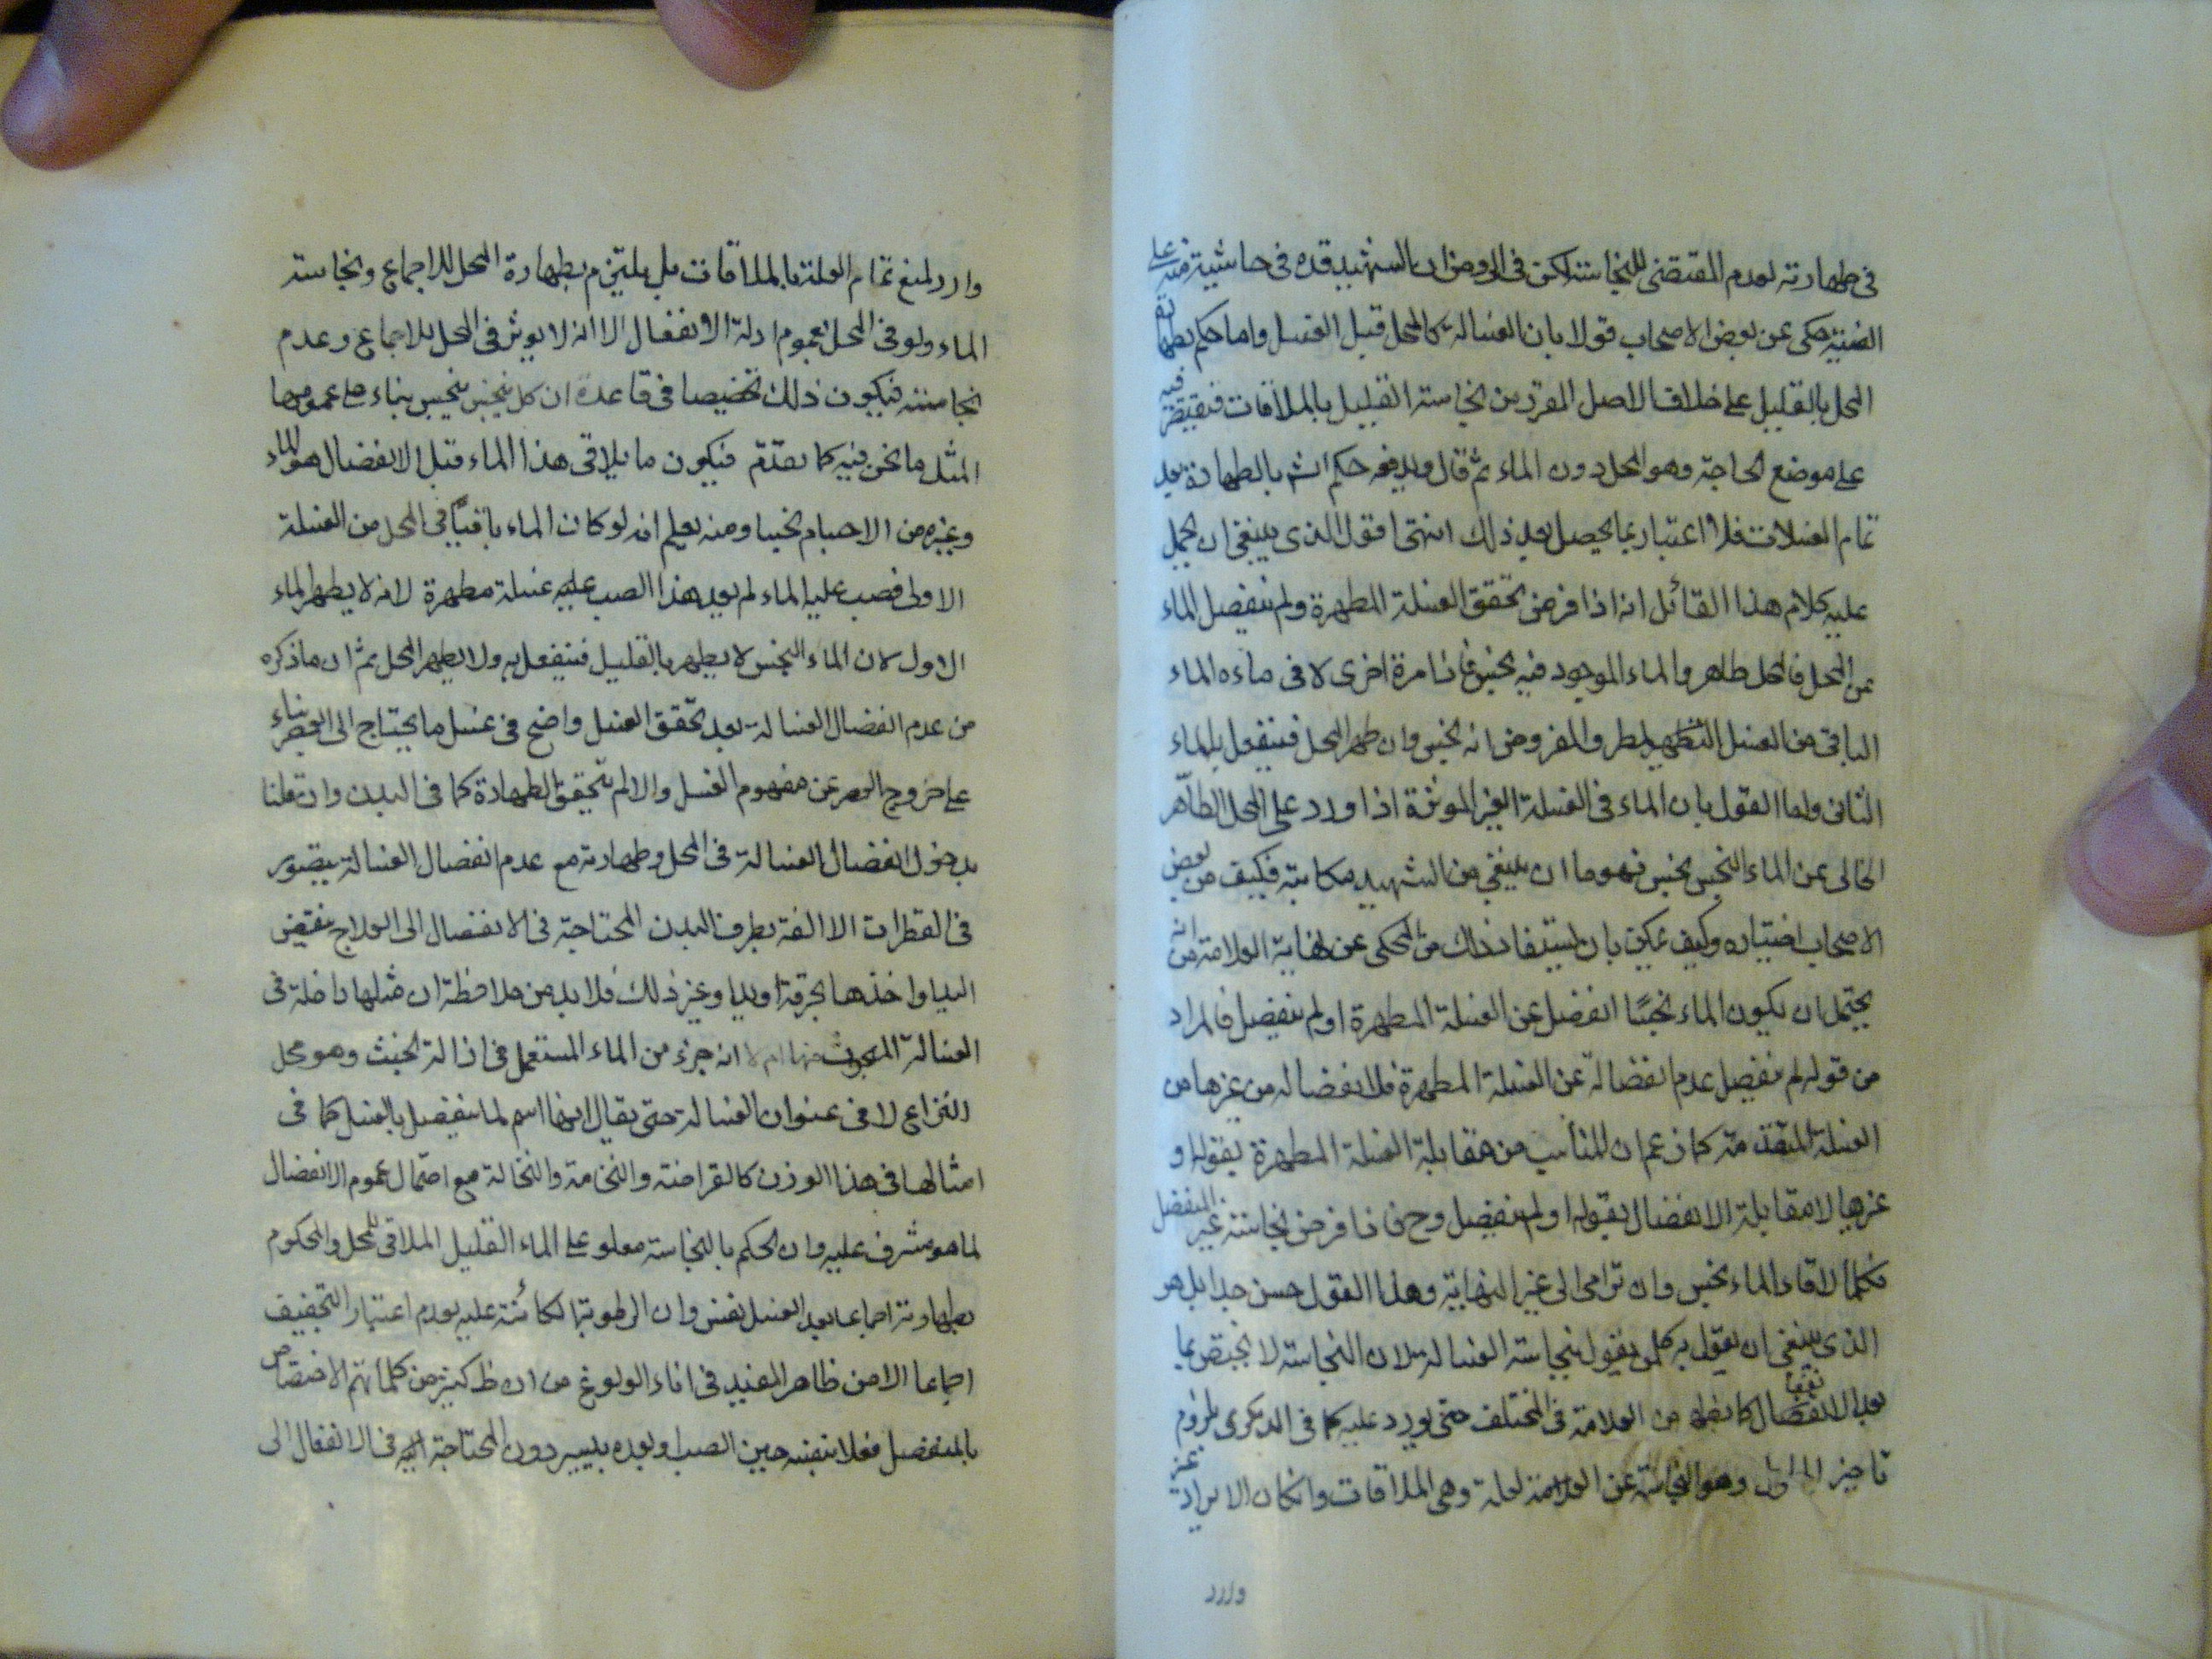 في طهارته لعدم المقتضى للنجاسة لكن في الروض ان الشهيد قده في حاشيته منه على
الفيته حكى عن بعض الاصحاب قولا بان الغسالة كالمحل قبل الغسل واما حكم بطهارة
المحل بالقليل على خلاف الاصل المقرر من نجاسة القليل بالملاقات فيقتصر فيه
على موضع الحاجة وهو المحل دون الماء ثم قال ويدفعه حكم الش بالطهارة بعد
تمام الغسلات فلا اعتبار بما يحصل بعد ذلك انتهى اقول الذى ينبغى ان يحمل
عليه كلام هذا القائل انه اذا فرض تحقق الغسلة المطهرة ولم ينفصل الماء
عن المحل فالمحل طاهر والماء الموجود فيه نجس فاذا مرة اخرى لاقى ماءه الماء
الباقى من الغسل المطهر والمفروض انه نجس وان طهر المحل فينفعل الماء
الثانى واما القول بان الماء في الغسلة الغير الموثرة اذا ورد على المحل الطاهر
الخالى عن الماء النجس نجس فهو ما ان ينبغى من الشهيد حكايته فكيف من بعض
الاصحاب اختياره وكيف يمكن بان يستفاد ذلك من المحكى عن نهاية العلامة من انه
يحتمل ان يكون الماء نجسًا انفصل عن الغسلة المطهرة او لم ينفصل فالمراد
من قوله لم ينفصل عدم انفصاله عن الغسلة المطهرة فلا انفصاله من غيرها من
الغسلة المتقدمة كما زعم ان المناسب من مقابلة الغسلة المطهرة بقوله او
غيرها لا مقابلة الانفصال بقوله او لم ينفصل وح فاذا فرض نجاسته غير المنفصل
فكلما لاقاه الماء نجس وان ترامى الى غير النهاية وهذا القول حسن جدا بل هو
الذى ينبغى ان يقول به كل من يقول بنجاسة الغسالة لان النجاسة لا تختص بما
بعد الانفصال كما يظهر من العلامة في المختلف حتى يورد عليه كما في الذكرى بلزوم
تاخير المعلول وهو النجاسة عن العلامة لعلة وهى الملاقات وان كان الايراد غير
وارد
وارد لمنع تمام العلة بالملاقات بل يلتزم بطهارة المحل للاجماع ونجاسة
الماء ولو في المحل لعموم ادلة الانفعال الا انه لا يوثر في المحل للاجماع وعدم
نجاسته فيكون ذلك تخصيصا في قاعدة ان كل نجس ينجس بناء على عمومها
لمثل ما نحن فيه كما تقدم فيكون ما يلاقى هذا الماء قبل الانفصال هو الماء
وغيره من الاجسام نجسا ومنه يعلم انه لو كان الماء باقيًا في المحل من الغسلة
الاولى فصب عليه الماء لم يعد هذا الصب عليه غسلة مطهرة لانه لا يطهر الماء
الاول لان الماء النجس لا يطهر بالقليل فينفعل به ولا يطهر المحل ثم ان ما ذكره
من عدم انفصال الغسالة بعد تحقق الغسل واضح في غسل ما يحتاج الى العصر بناء
على خروج العصر عن مفهوم الغسل والا لم يتحقق الطهارة كما في البدن وان قلنا
بدخول انفصال الغسالة في المحل وطهارته مع عدم انفصال الغسالة يتصور
في القطرات الاالفة بطرف البدن المحتاجة في الانفصال الى العلاج بنفض
اليد او اخذها بخرقة او يد او غير ذلك فلا بد من ملاحظة ان مثلها داخلة في
الغسالة المبحوث عنها ام لا انه جزء من الماء المستعمل في ازالة الخبث وهو محل
النزاع لا في عنوان الغسالة حتى يقال انها اسم لما ينفصل بالغسل كما في
امثالها في هذا الوزن كالقراضة والنخامة والنخالة مع احتمال عموم الانفصال
لما هو مشرف عليه وان الحكم بالنجاسة معلو على الماء القليل الملاقى للمحل والمحكوم
بطهارته اجماعا بعد الغسل نفس وان الرطوبة الكائنة عليه بعدم اعتبار التجفيف
اجماعا الا من ظاهر المفيد في اناء الولوغ من ان ظ كثير من كلماتهم الاختصاص
بالمنفصل فعلا بنفسه حين الصب او بعده بيسير دون المحتاجة اليه في الانفعال الى